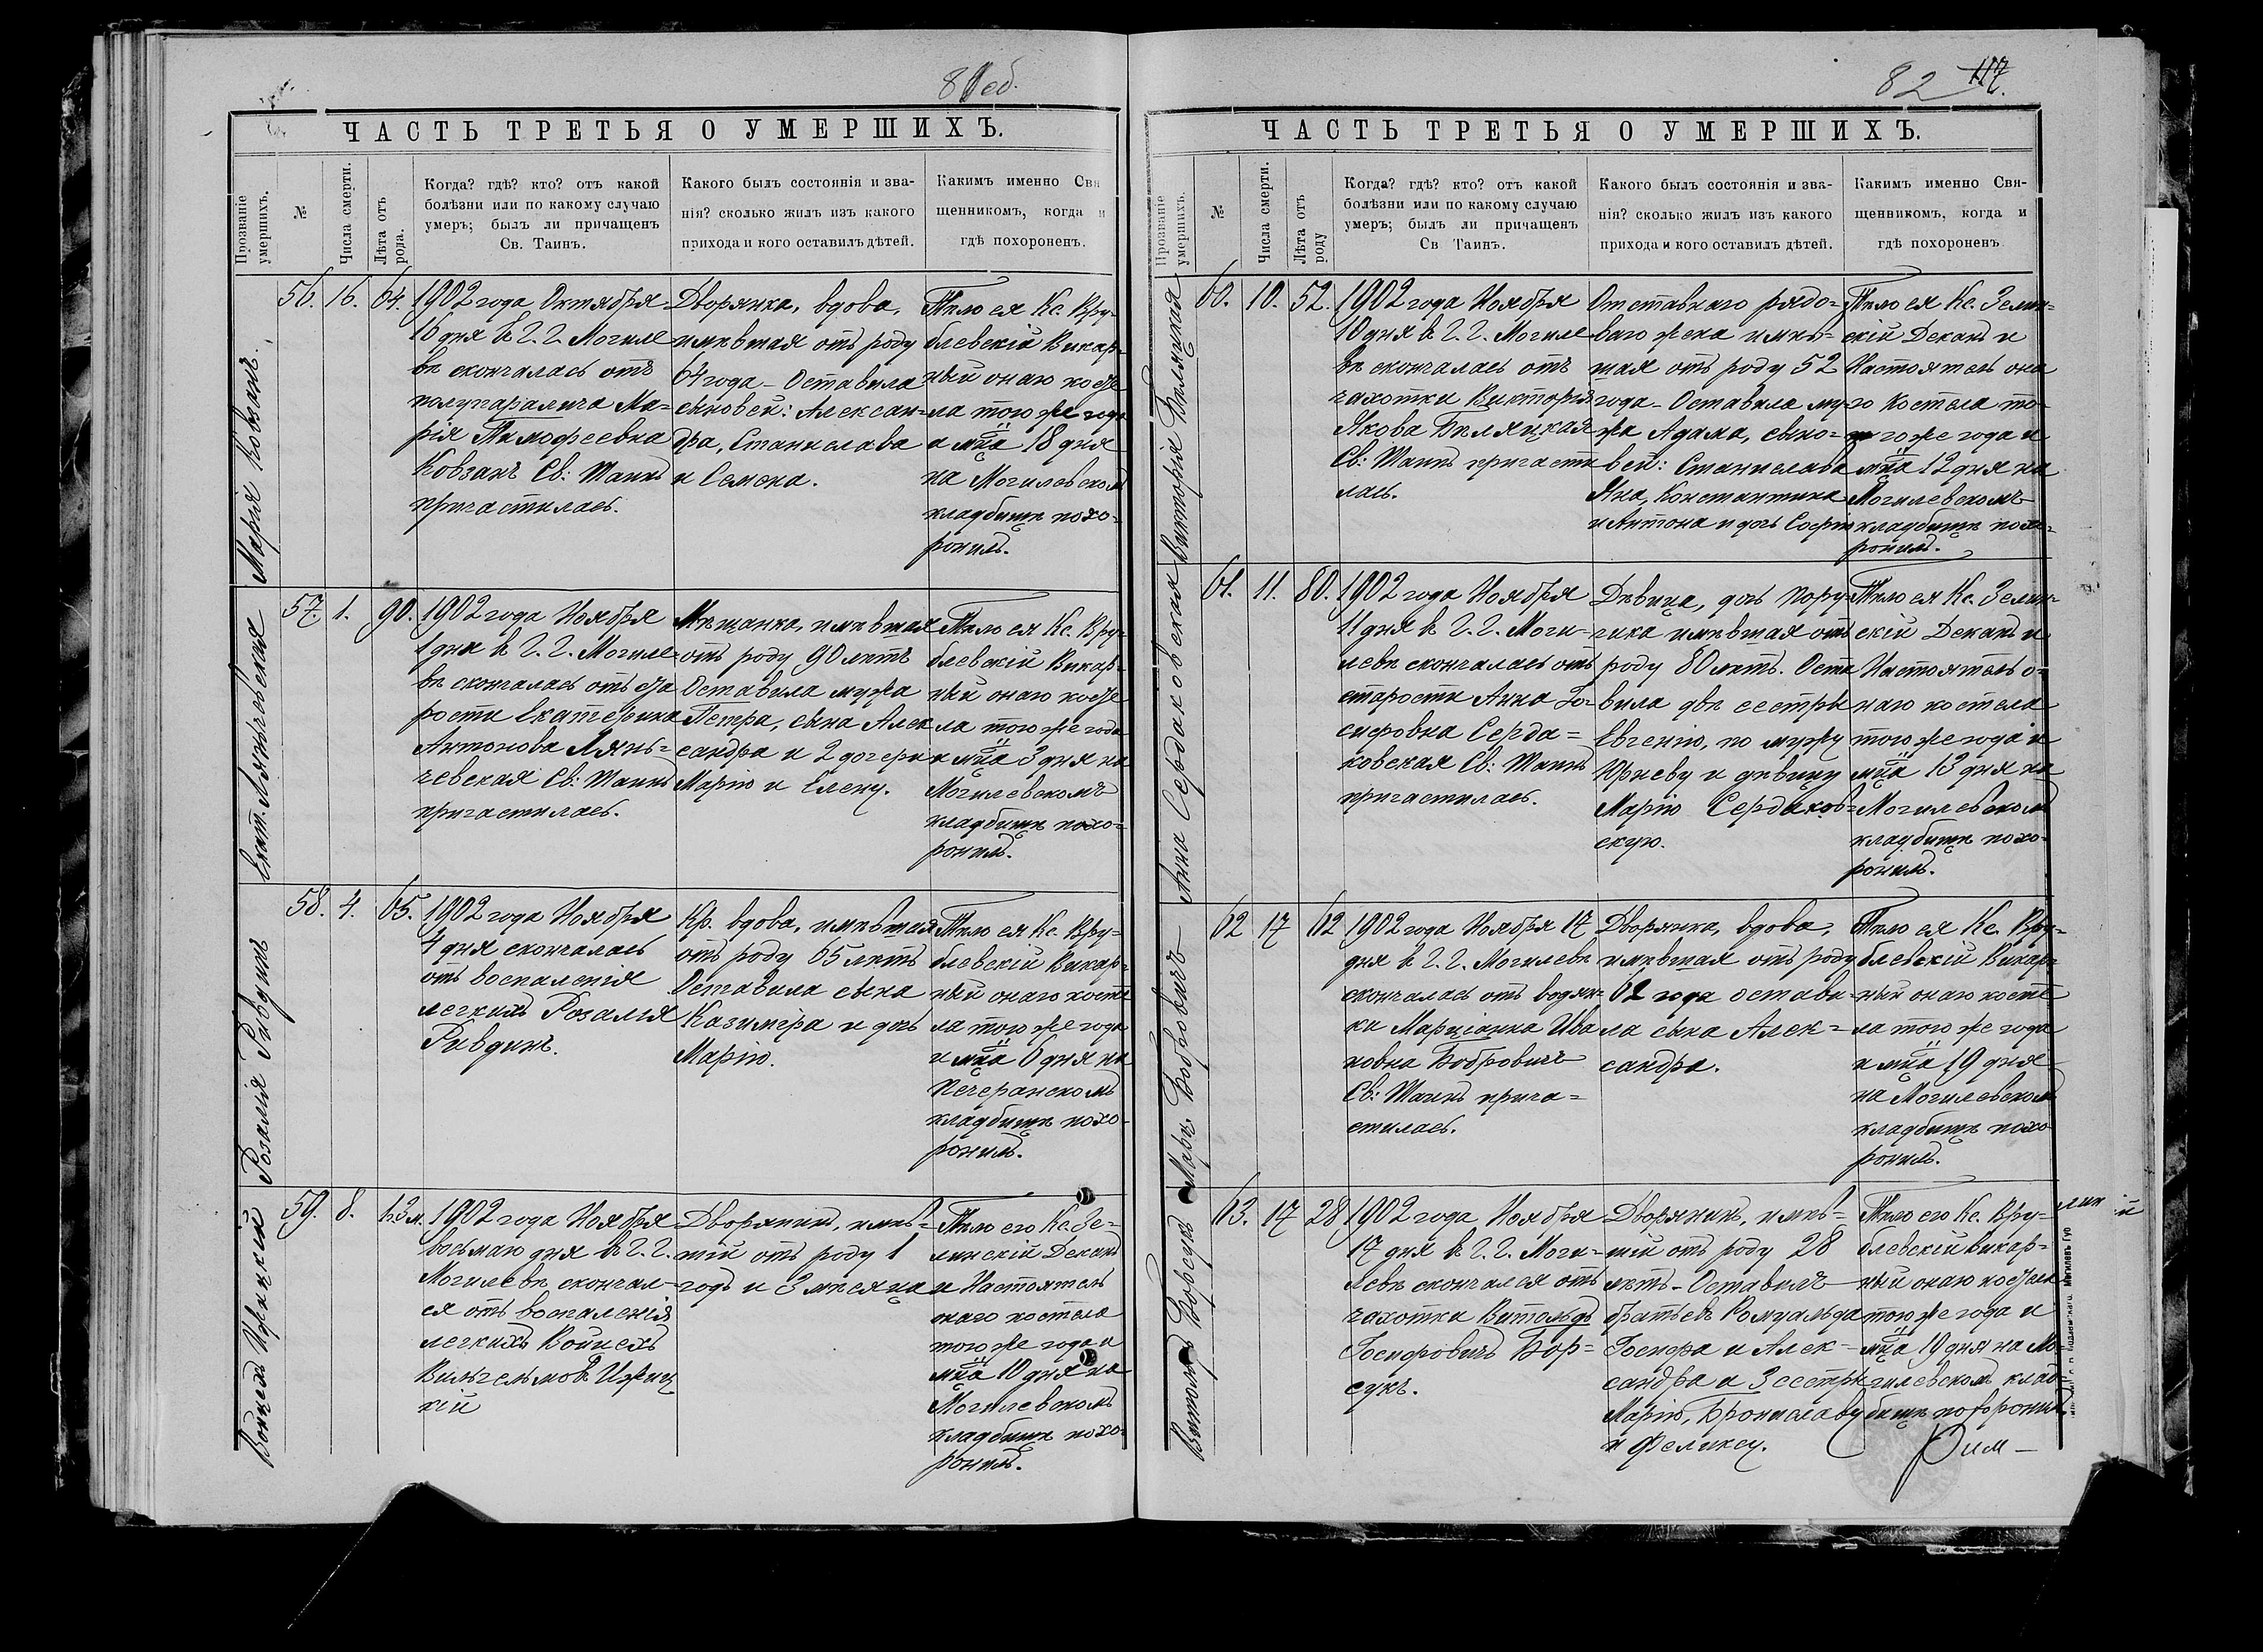 81 об.
ЧАСТЬ ТРЕТЬЯ О УМЕРШИХЪ.
Прозваніе умершихъ.
№
Числа смерти.
Лѣта отъ рода.
Когда? гдѣ? кто? отъ какой
болѣзни или по какому случаю
умеръ; былъ ли причащенъ
Св. Таинъ.
Какого былъ состоянія и зва-
нія? сколько жилъ изъ какого
прихода и кого оставилъ дѣтей.
Какимъ именно Свя
щенникомъ, когда и
гдѣ похороненъ.
Марія Ковзанъ.
56. 16. 64.
1902 года Октября
16 дня въ г. г. Могиле
вѣ скончалась отъ
полупаралича Ма-
рія Тимофеевна
Ковзанъ Св: Таинъ
причастилась.
Дворянка, вдова,
имѣвшая отъ роду
64 года - Оставила
сыновей: Алексан-
дра, Станислава
и Семена.
Тѣло ея Кс. Вру-
блевскій Викар-
ный онаго косте
ла того же года
и мца 18 дня
на Могилевскомъ
кладбищѣ похо-
ронилъ.
Екат. Лянчевская
57. 1. 90.
1902 года Ноября
1 дня въ г. г. Могиле-
вѣ скончалась отъ ста
рости Екатерина
Антонова Лянь=
чевская Св: Таинъ
причастилась.
Мѣщанка, имѣвшая
отъ роду 90 лѣтъ
Оставила мужа
Петра, сына Алек
сандра и 2 дочери
Марію и Елену.
Тѣло ея Кс. Вру-
блевскій Викар-
ный онаго косте
ла того же года
и мца 3 дня на
Могилевскомъ
кладбищѣ похо-
ронилъ.
Розалія Ривдинъ
58. 4. 65.
1902 года Ноября
4 дня скончалась
отъ воспаленія
легкихъ Розалія
Ривдинъ.
Кр. вдова, имѣвшая
отъ роду 65 лѣтъ
Оставила сына
Казиміра и дочь
Марію.
Тѣло ея Кс. Вру-
блевскій Викар-
ный онаго косте
ла того же года
и мца 6 дня на
Печеранскомъ
кладбищѣ похо-
ронилъ.
Войцехъ Ижицкій
59. 8. 1г.3м.
1902 года Ноября
восьмаго дня въ г. г.
Могилевѣ скончал-
ся отъ воспаленія
легкихъ Войцехъ
Вильгельмовъ Ижиц
кій
Дворянинъ, имѣв-
шій отъ роду 1
годъ и 3 мѣсяца
Тѣло его Кс. Зе-
линскій Деканъ
и Настоятель
онаго костела
того же года и
мца 10 дня на
Могилевскомъ
кладбищѣ похо-
ронилъ.
82 117.
ЧАСТЬ ТРЕТЬЯ О УМЕРШИХЪ.
Прозваніе умершихъ.
№
Числа смерти.
Лѣта отъ роду
Когда? гдѣ? кто? отъ какой
болѣзни или по какому случаю
умеръ; былъ ли причащенъ
Св Таинъ.
Какого былъ состоянія и зва-
нія? сколько жилъ изъ какого
прихода и кого оставилъ дѣтей.
Какимъ именно Свя-
щенникомъ, когда и
гдѣ похороненъ
Викторія Бѣляцкая
60. 10. 52.
1902 года Ноября
10 дня въ г. г. Могиле
вѣ скончалась отъ
чахотки Викторія
Якова Бѣляцкая
Св: Таинъ причасти
лась.
Отставнаго рядо-
ваго жена имѣв-
шая отъ роду 52
года - Оставила му-
жа Адама, сыно-
вей: Станислава
Яна, Константина
и Антона и дочь Софію
Тѣло ея Кс. Зелин-
скій Деканъ и
Настоятель она
го Костела то-
го же года и
мца 12 дня на
Могилевскомъ
кладбищѣ похо-
ронилъ.
Анна Сердаковская
61. 11. 80.
1902 года Ноября
11 дня въ г. г. Моги-
левѣ скончалась отъ
старости Анна Іо-
сифовна Серда=
ковская Св: Таинъ
причастилась.
Дѣвица, дочь Пору-
чика имѣвшая отъ
роду 80 лѣтъ. Оста
вила двѣ сестры
Евгенію, по мужу
и дѣвицу
Марію Сердаков=
скую.
Тѣло ея Кс. Зелин-
скій Деканъ и
Настоятель о-
наго костела
того же года и
мца 13 дня на
Могилевскомъ
кладбищѣ похо-
ронилъ.
Марц. Бобровичъ
62 17 62
1902 года Ноября 17
дня въ г. г. Могилевѣ
скончалась отъ водян-
ки Марціанна Ива
новна Бобровичъ
Св: Таинъ прича=
стилась.
Дворянка, вдова,
имѣвшая отъ роду
62 года остави-
ла сына Алек=
сандра.
Тѣло ея Кс. Вру-
блевскій Викар-
ный онаго косте
ла того же года
и мца 19 дня
на Могилевскомъ
кладбищѣ похо-
ронилъ.
Витольдъ Борсукъ
63. 17 28
1902 года Ноября
17 дня въ г. г. Моги-
левѣ скончался отъ
чахотки Витольдъ
Іосифовичъ Бор=
сукъ.
Дворянинъ, имѣв-
шій отъ роду 28
лѣтъ - Оставилъ
братьевъ Ромуальда
Іосифа и Алек-
сандра и 3 сестры
Марію, Брониславу
и Феликсу.
Тѣло его Кс. Вру-
блевскій викар-
ный онаго костела
того же года и
мца 19 дня на Мо-
гилевскомъ клад
бищѣ похоронилъ
Рим-